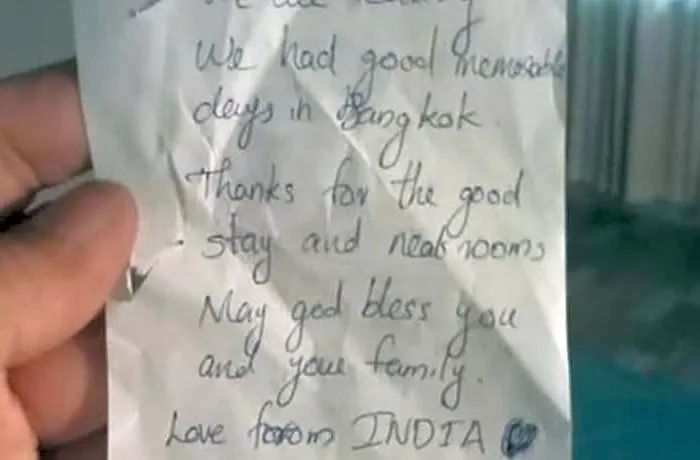 We had good memorable
days in Bangkok.
Thanks for the good
stay and neat rooms
May god bless you
and your family.
Love from INDIA